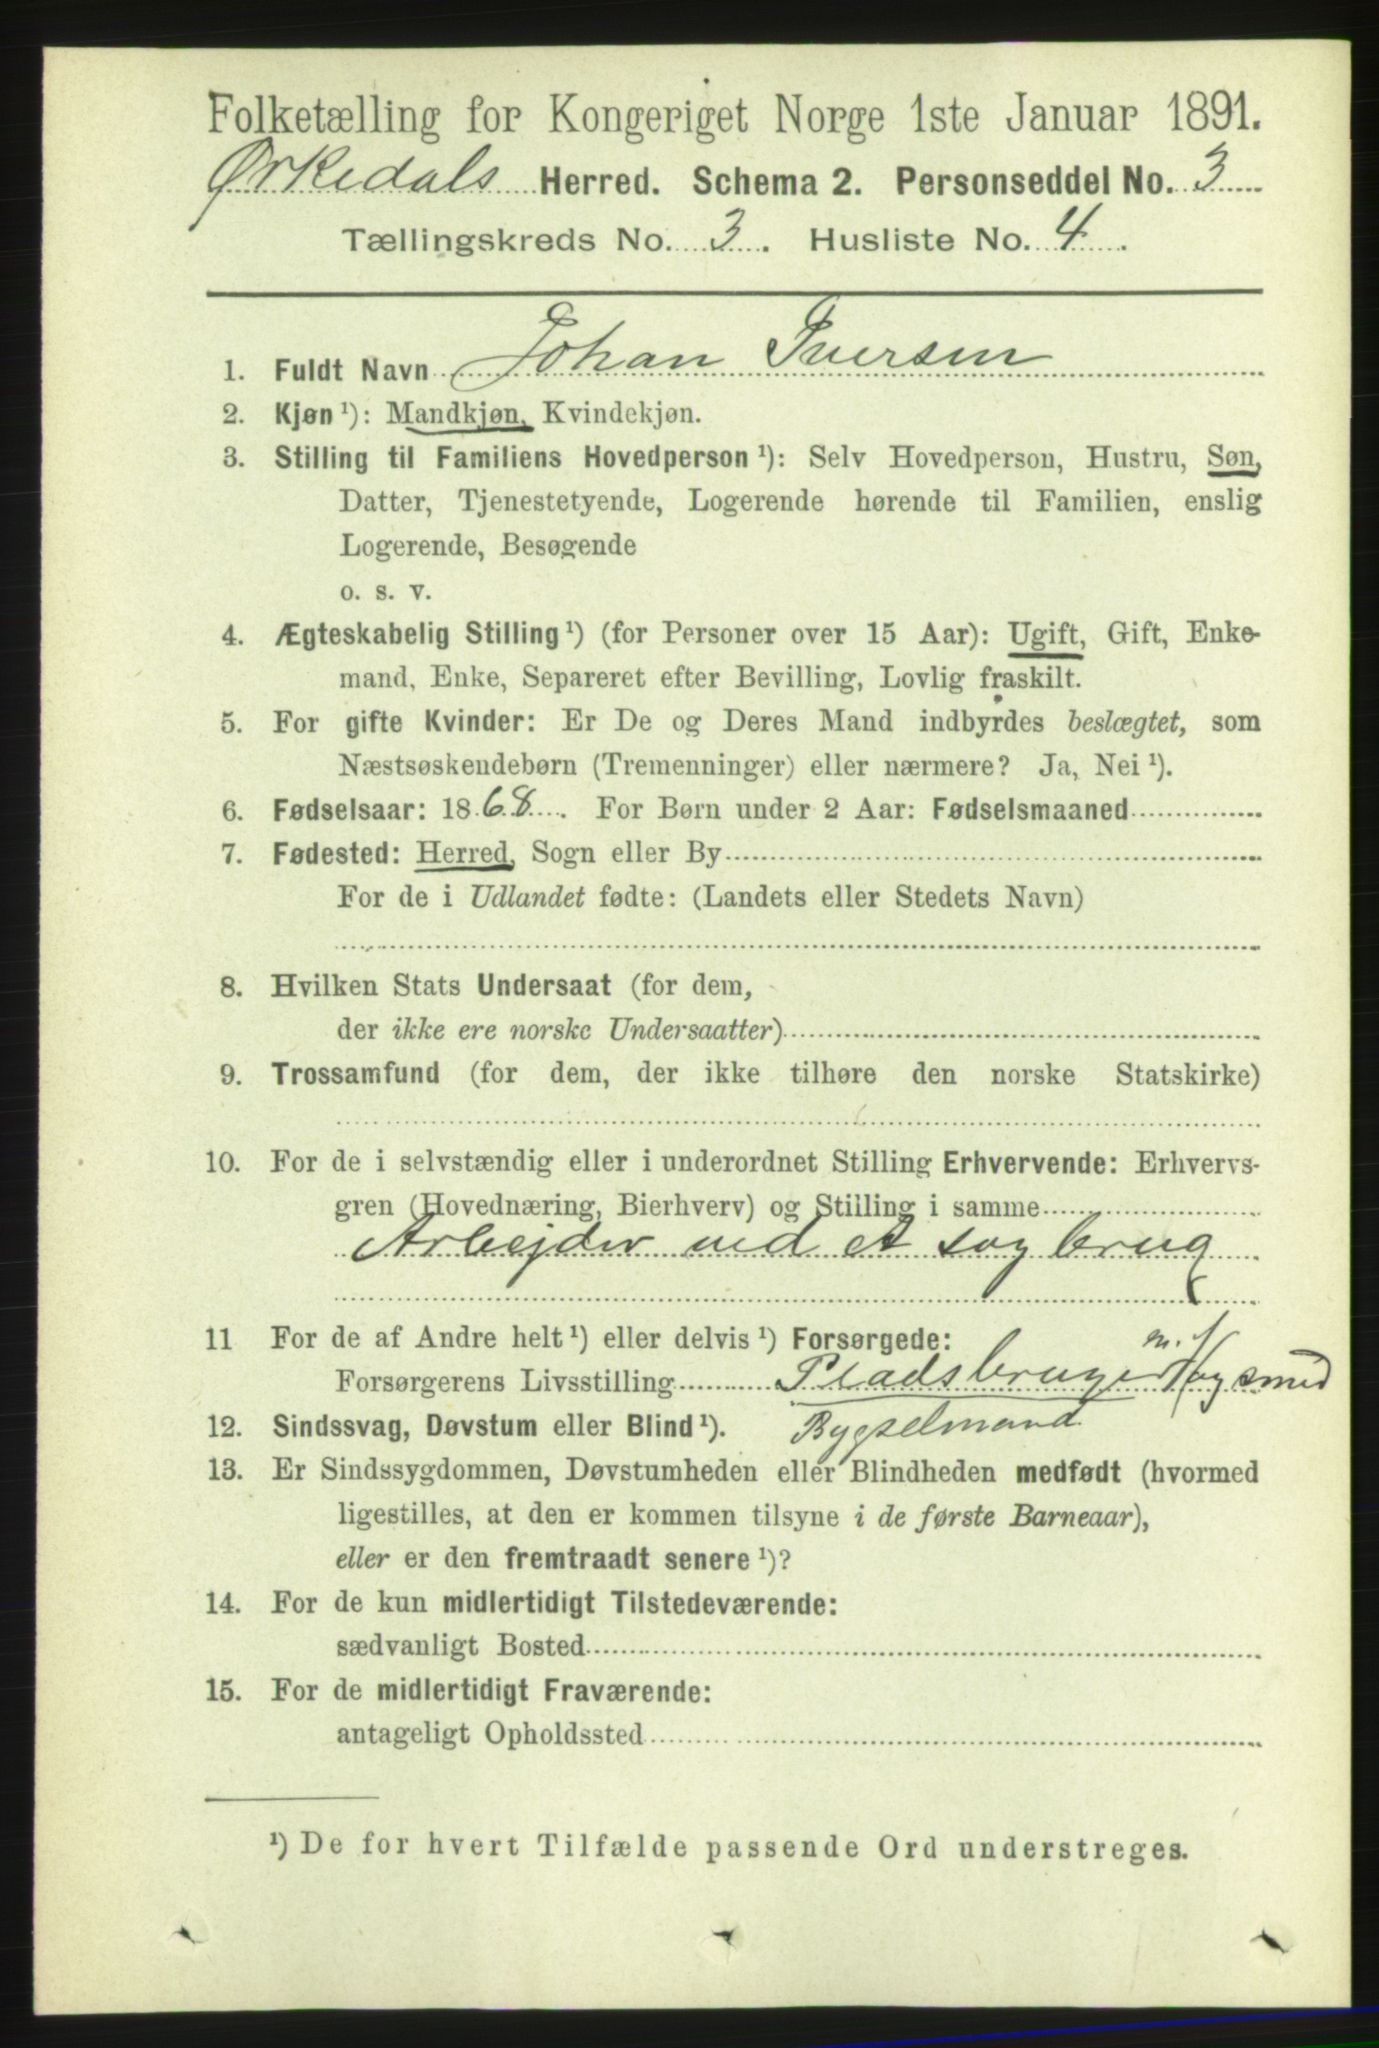 Folketælling for Kongeriget Norge 1ste Januar 1891.
Ørkedals Herred. Schema 2. Personseddel No. 3
Tællingskreds No. 3. Husliste No. 4.
1. Fuldt Navn Johan Iversen
2. Kjøn ¹): Mandkjøn, Kvindekjøn.
3. Stilling til Familiens Hovedperson ¹): Selv Hovedperson, Hustru, Søn,
Datter, Tjenestetyende, Logerende hørende til Familien, enslig
Logerende, Besøgende
o. s. v.
4. Ægteskabelig Stilling ¹) (for Personer over 15 Aar): Ugift, Gift, Enke-
mand, Enke, Separeret efter Bevilling, Lovlig fraskilt.
5. For gifte Kvinder: Er De og Deres Mand indbyrdes beslægtet, som
Næstsøskendebørn (Tremenninger) eller nærmere? Ja, Nei ¹).
6. Fødselsaar: 1868. For Børn under 2 Aar: Fødselsmaaned
7. Fødested: Herred, Sogn eller By
For de i Udlandet fødte: (Landets eller Stedets Navn)
8. Hvilken Stats Undersaat (for dem,
der ikke ere norske Undersaatter)
9. Trossamfund (for dem, der ikke tilhøre den norske Statskirke)
10. For de i selvstændig eller i underordnet Stilling Erhvervende: Erhvervs-
gren (Hovednæring, Bierhverv) og Stilling i samme
Arbejder ved et sagbrug
11 For de af Andre helt ¹) eller delvis ¹) Forsørgede:
Forsørgerens Livsstilling Pladsbruger m. J og smed
12. Sindssvag, Døvstum eller Blind ¹). Bygselmand
13. Er Sindssygdommen, Døvstumheden eller Blindheden medfødt (hvormed
ligestilles, at den er kommen tilsyne i de første Barneaar),
eller er den fremtraadt senere ¹)?
14. For de kun midlertidigt Tilstedeværende:
sædvanligt Bosted
15. For de midlertidigt Fraværende:
antageligt Opholdssted
¹) De for hvert Tilfælde passende Ord understreges.